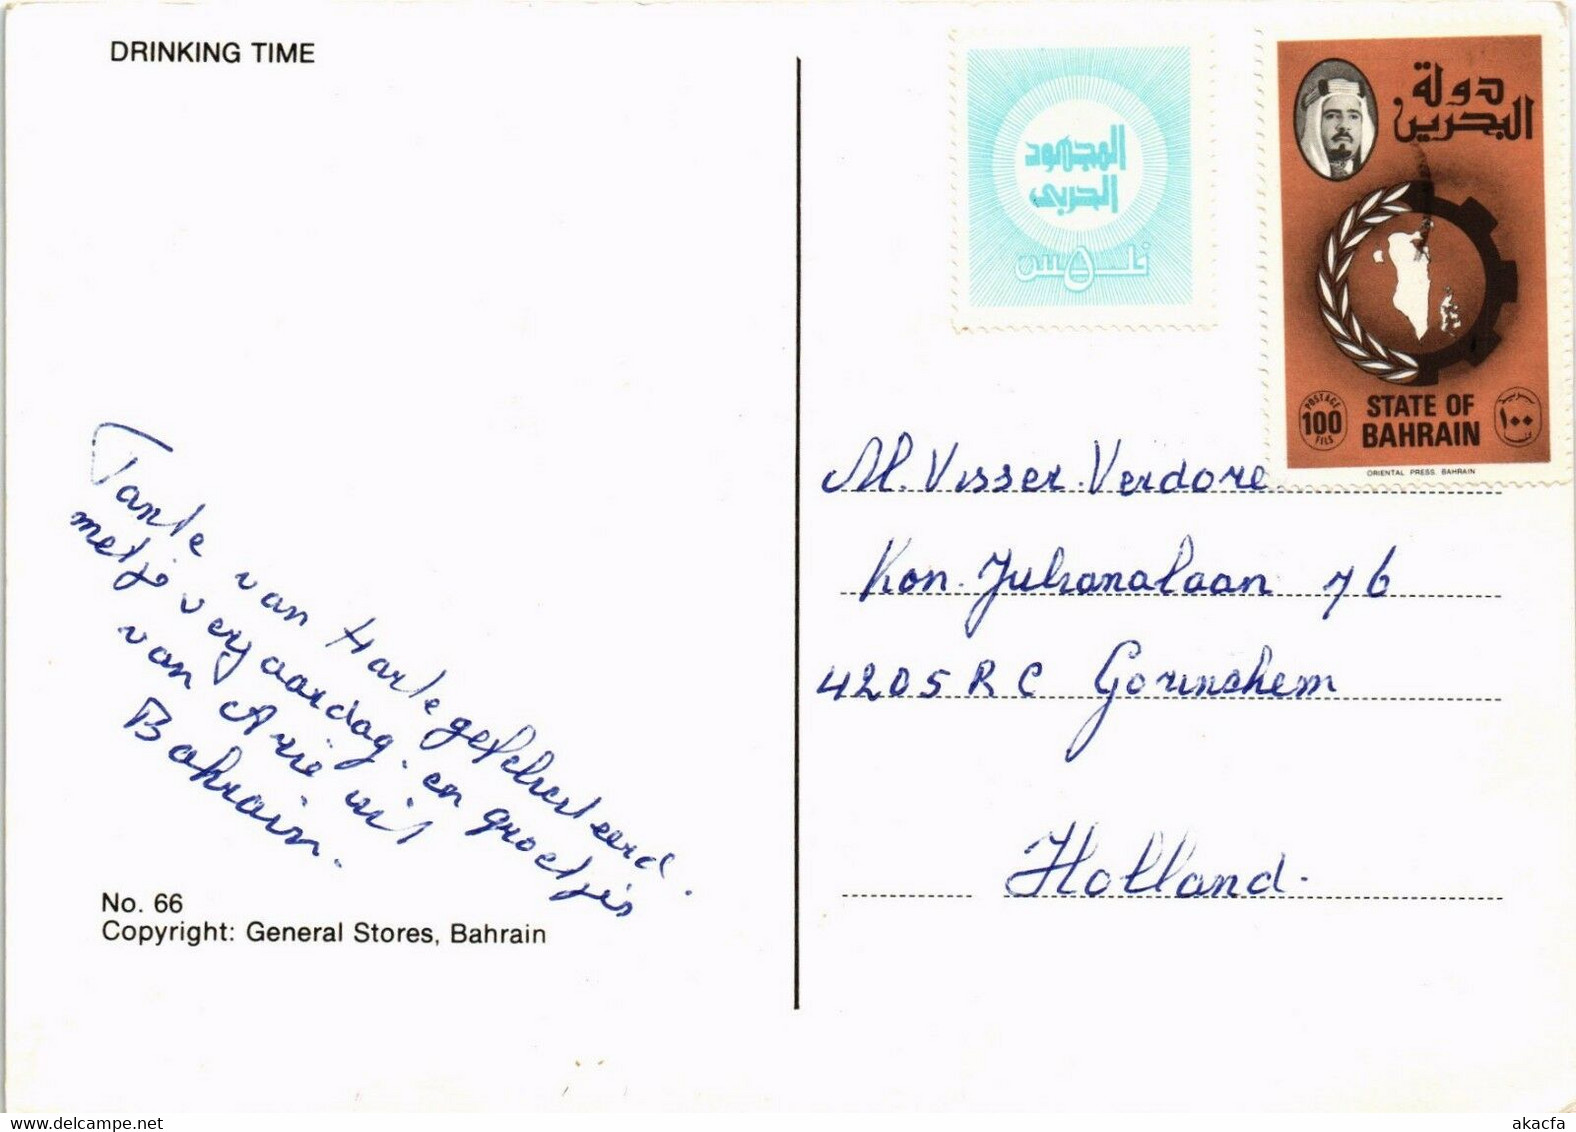 DRINKING TIME
المجهود
الحربي
٥ فلس
دولة
البحرين
POSTAGE
100
FILS
STATE OF
BAHRAIN
بريد
١٠٠
فلس
ORIENTAL PRESS. BAHRAIN
Tante van Harte gefeliciteerd.
metje verjaardag. en groetjes
van Arie uit
Bahrain.
M. Visser. Verdore
Kon. Julianalaan 76
4205 RC Gorinchem
Holland.
No. 66
Copyright: General Stores, Bahrain
akacfa
www.delcampe.net